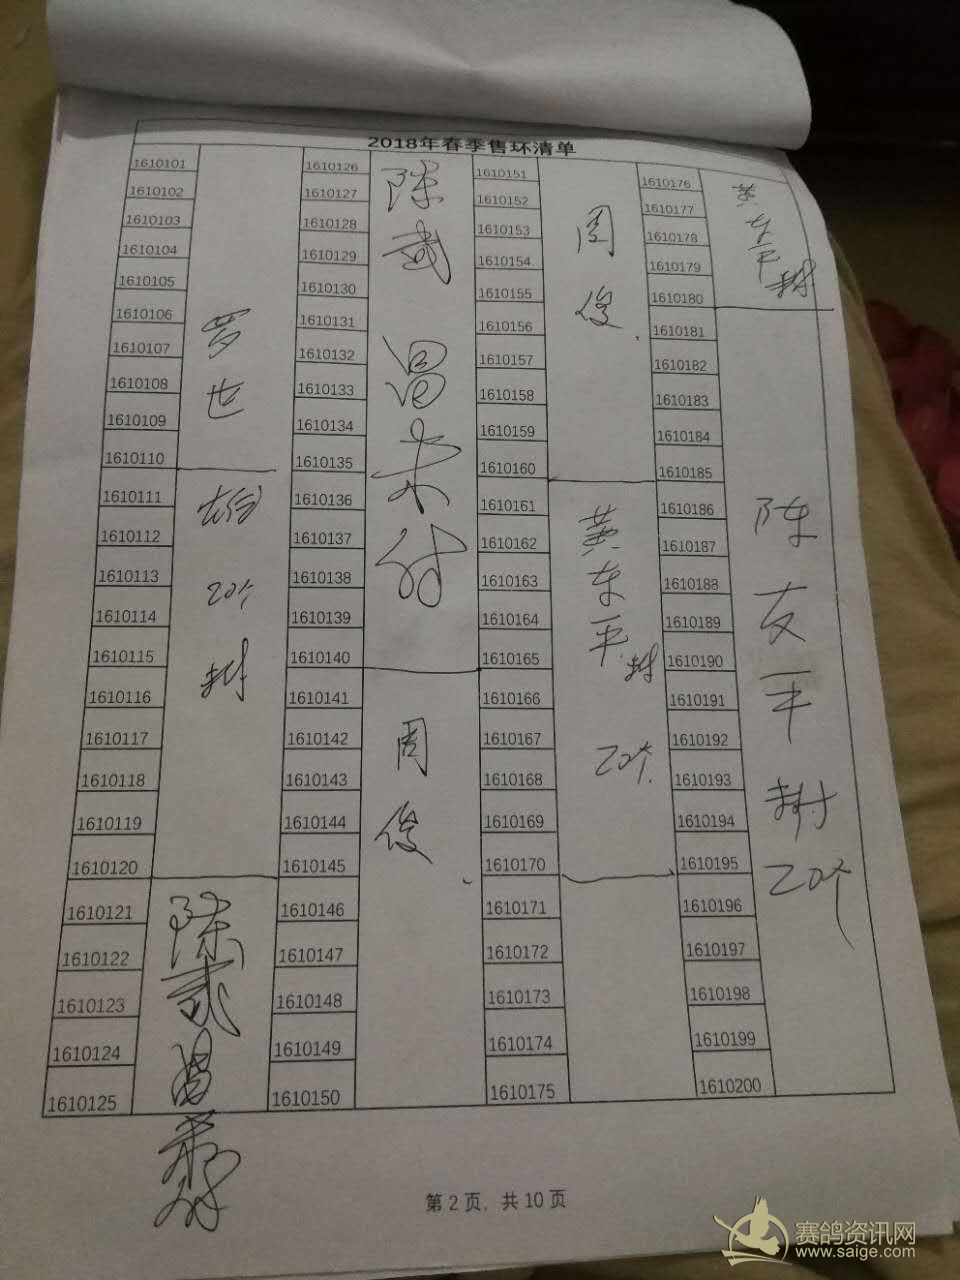 2018年春季售环清单
1610101
1610102
1610103
1610104
1610105
1610106
1610107
1610108
1610109
1610110
1610111
1610112
1610113
1610114
1610115
1610116
1610117
1610118
1610119
1610120
1610121
1610122
1610123
1610124
1610125
罗世
20个
陈武昌
1610126
1610127
1610128
1610129
1610130
1610131
1610132
1610133
1610134
1610135
1610136
1610137
1610138
1610139
1610140
1610141
1610142
1610143
1610144
1610145
1610146
1610147
1610148
1610149
1610150
陈武昌
周俊
1610151
1610152
1610153
1610154
1610155
1610156
1610157
1610158
1610159
1610160
1610161
1610162
1610163
1610164
1610165
1610166
1610167
1610168
1610169
1610170
1610171
1610172
1610173
1610174
1610175
周俊
黄东平
20个
1610176
1610177
1610178
1610179
1610180
1610181
1610182
1610183
1610184
1610185
1610186
1610187
1610188
1610189
1610190
1610191
1610192
1610193
1610194
1610195
1610196
1610197
1610198
1610199
1610200
黄东平
陈友平
20个
第 2 页，共 10 页
赛鸽资讯网
www.saige.com